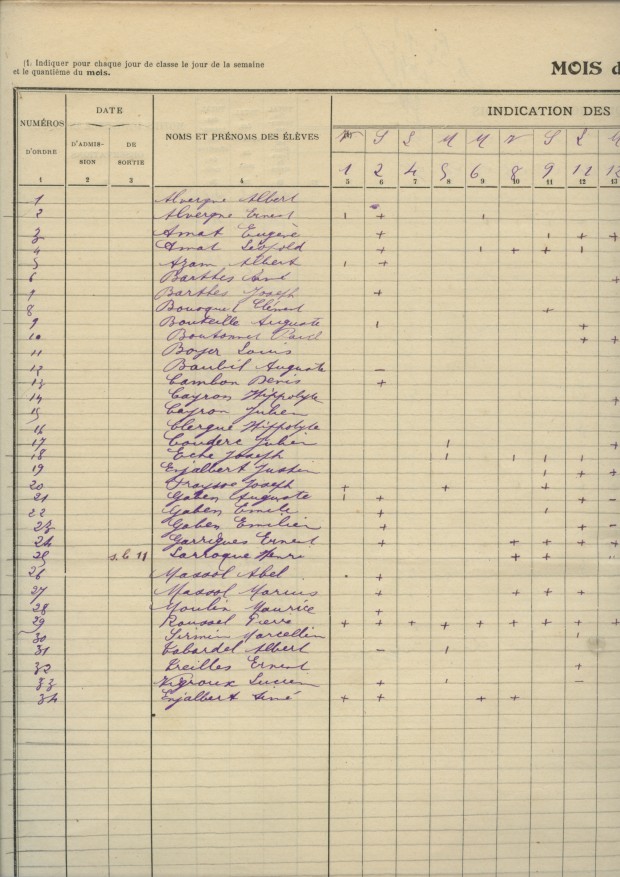 (1. Indiquer pour chaque jour de classe le jour de la semaine
et le quantième du mois.
MOIS d
NUMÉROS D'ORDRE
DATE
D'ADMIS- SION
DE SORTIE
NOMS ET PRÉNOMS DES ÉLÈVES
INDICATION DES
V S L M M V S L M
1 2 4 5 6 8 9 11 12
1 2 3 4 5 6 7 8 9 10 11 12 13
1 Alvergne Albert
2 Alvergne Ernest ı + ı
3 Amat Eugène + ı + +
4 Amat Léopold + ı + + ı
5 Azam Albert ı +
6 Barthes +
7 Barthes Joseph +
8 Bousquet Clément +
9 Bouteille Auguste ı +
10 Boutonnet Paul + +
11 Boyer Louis
12 Auguste -
13 Cambon Denis +
14 Cayron Hippolyte +
15 Cayron Julien
16 Clergue Hippolyte
17 Couderc Julien ı +
18 Eche Joseph ı ı ı ı
19 Enjalbert Justin ı + +
20 Fraysse Joseph + + +
21 Gaben Auguste ı + + -
22 Gaben Emile + ı
23 Gaben Emilien + + -
24 Garrigues Ernest + + + + +
25 s. le 11 Larroque Henri + +
26 Massol Abel +
27 Massol Marius + + + +
28 Moulin Maurice +
29 Roussel Pierre + + + + + + + + +
30 Sirmin Marcellin ı
31 Tabardel Albert - ı
32 Treilles Ernest +
33 Vigroux Lucien + ı -
34 Enjalbert Aimé + + + +